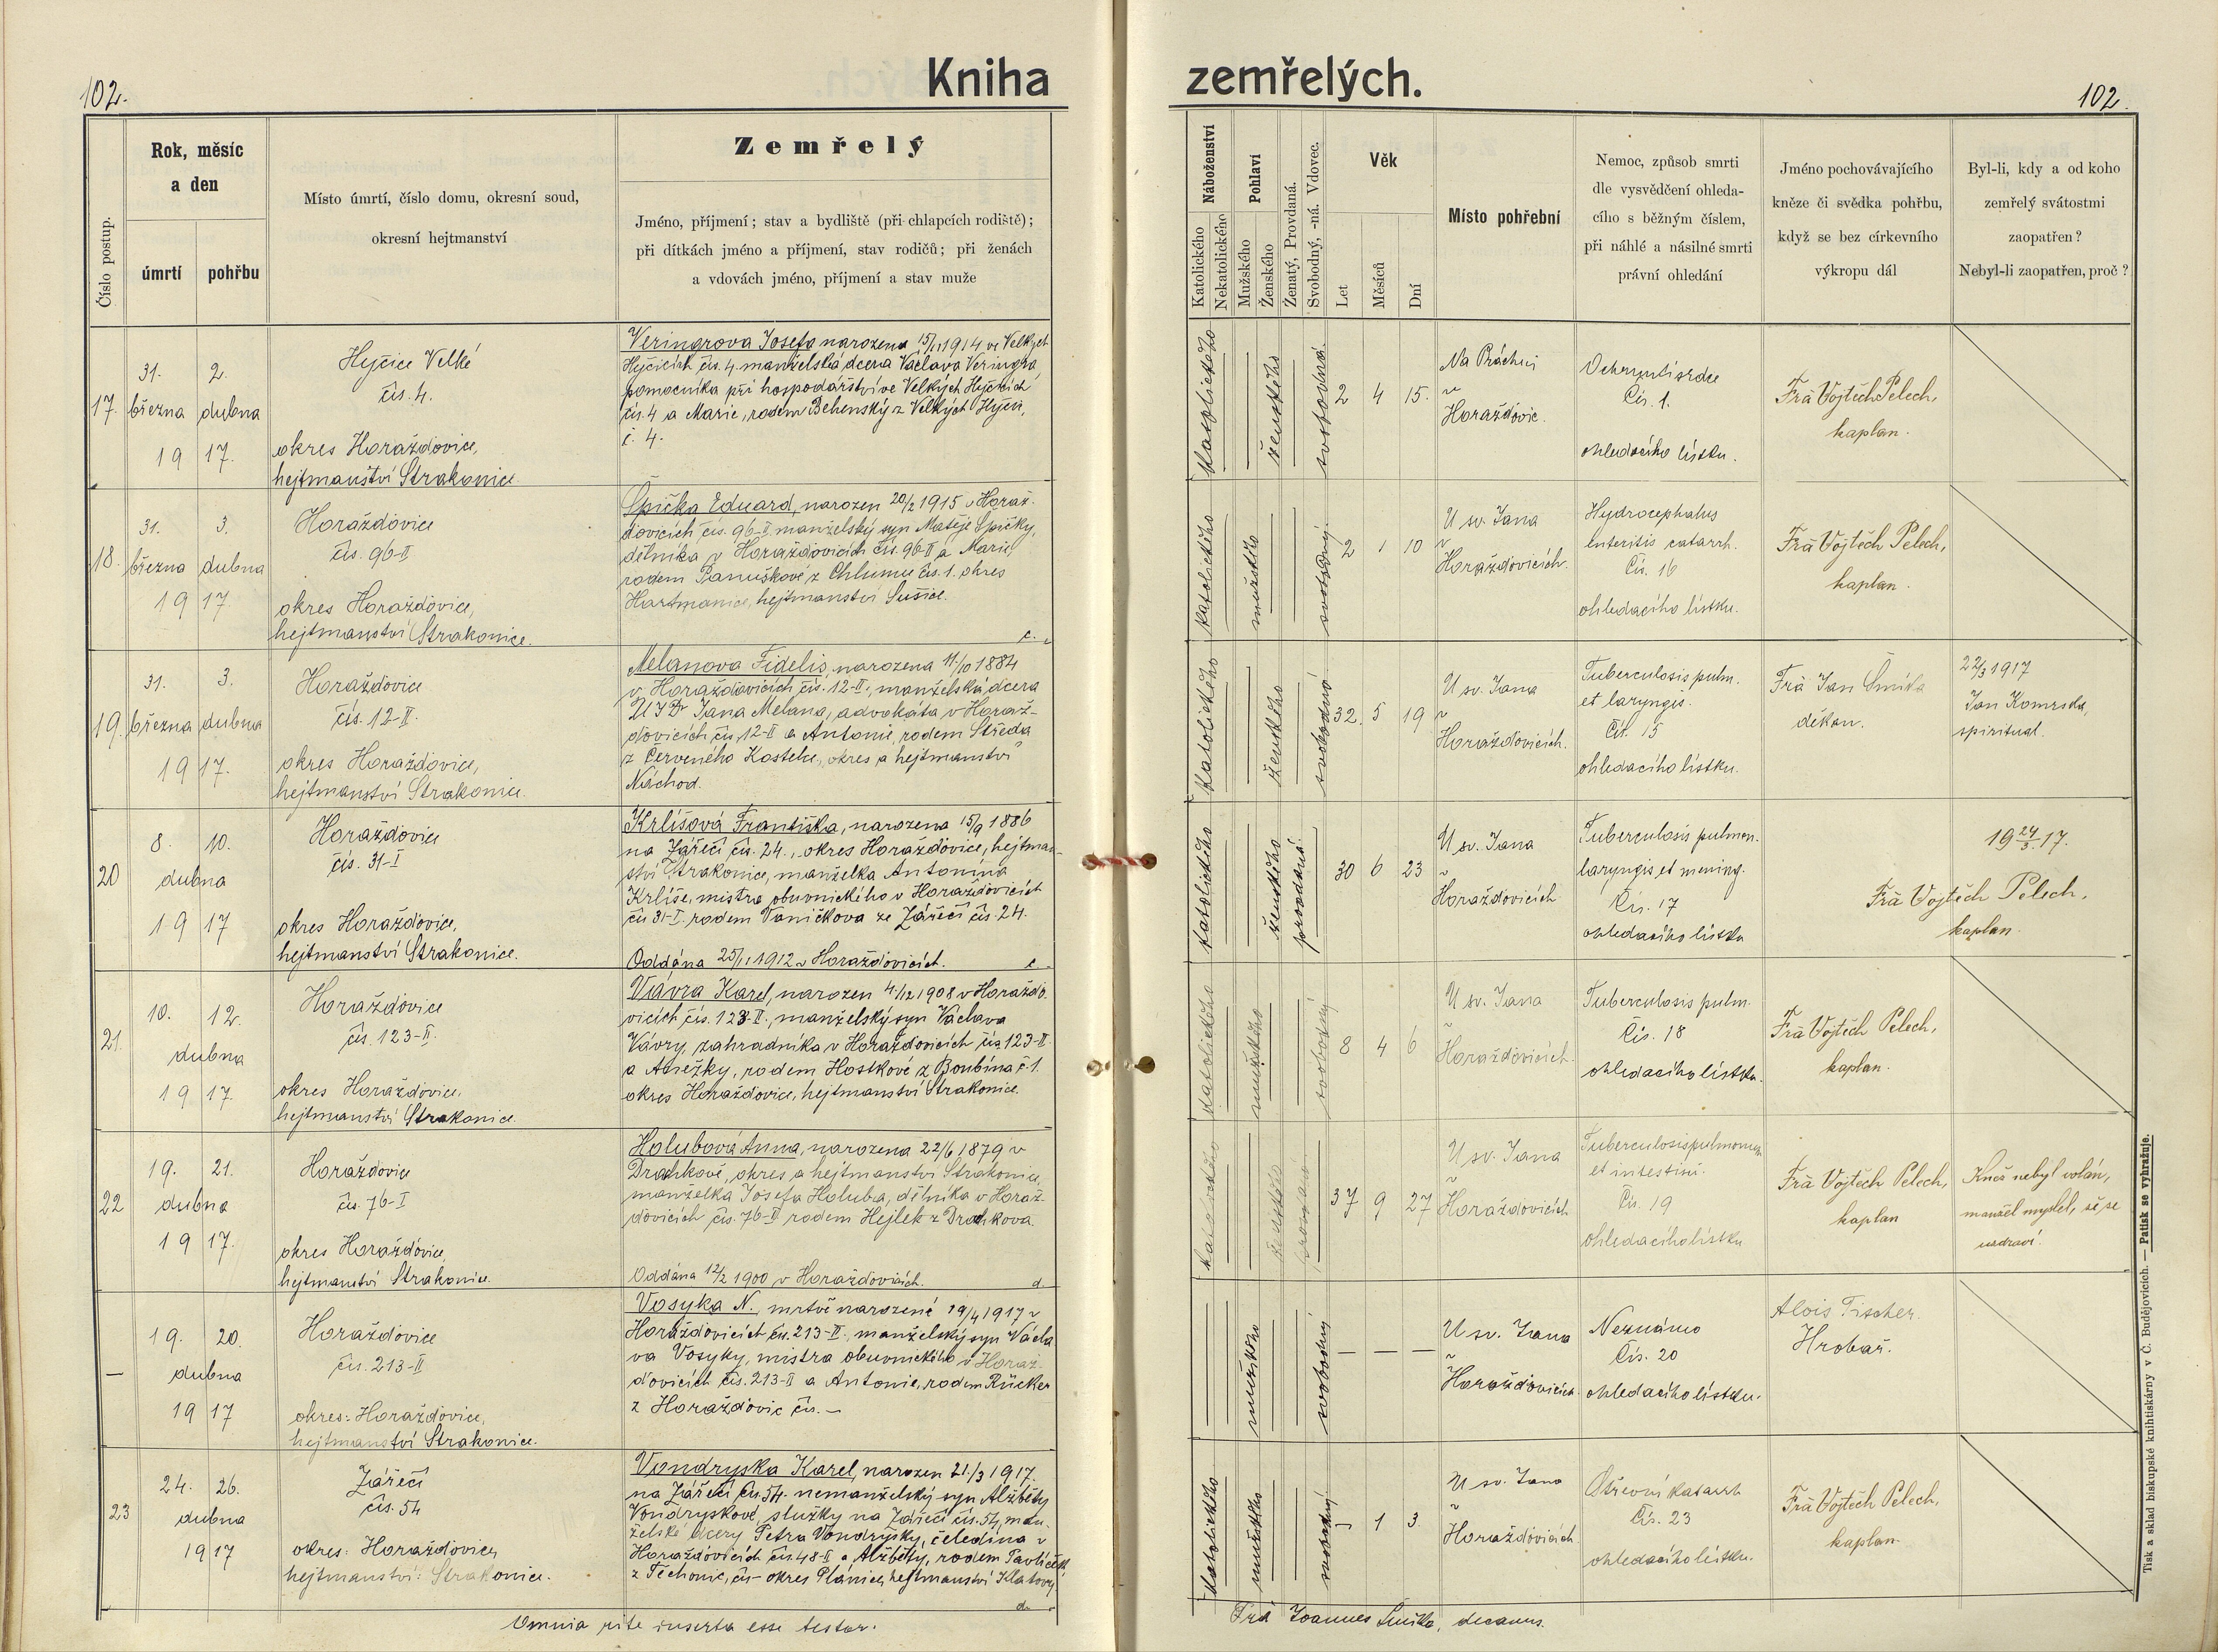 102.
Kniha
Číslo postup.
Rok, měsíc
a den
úmrtí
pohřbu
Místo úmrtí, číslo domu, okresní soud,
okresní hejtmanství
Zemřelý
Jméno, příjmení; stav a bydliště (při chlapcích rodiště);
při dítkách jméno a příjmení, stav rodičů; při ženách
a vdovách jméno, příjmení a stav muže
17.
31. 2.
března dubna
19 17.
Hejčice Velké
čís. 4.
okres Horažďovice,
hejtmanství Strakonice
Veringrova Josefa narozena 15/11 1914 ve Velkých
Hyčicích čís. 4. manželská dcera Václava Veringra,
pomocníka při hospodářství ve Velkých Hyčicích
čís. 4 a Marie, rodem Behenský z Velkých Hyčic,
č. 4.
18.
31. 3.
března dubna
19 17.
Horažďovice
čís. 96-II
okres Horažďovice,
hejtmanství Strakonice.
Špička Eduard, narozen 20/2 1915 v Horaž-
ďovicích čís. 96-II manželský syn Matěje Špičky,
dělníka v Horažďovicích čís. 96-II a Marie,
rodem Panuškové z Chlumu čís. 1. okres
Hartmanice, hejtmanství Sušice.
c.
19.
31. 3.
března dubna
19 17.
Horažďovice
čís. 12-II.
okres Horažďovice,
hejtmanství Strakonice.
Melanova Fidelis, narozena 11/10 1884
v Horažďovicích, čís. 12-II., manželská dcera
JUDr Jana Melana, advokáta v Horaž-
ďovicích čís. 12-II a Antonie, rodem Středa
z Červeného Kostelce, okres a hejtmanství
Náchod.
20
8. 10.
dubna
19 17
Horažďovice
čís. 31-I
okres Horažďovice,
hejtmanství Strakonice.
Krlišová Františka, narozena 15/9 1886
na Zářečí čís. 24., okres Horažďovice, hejtman-
ství Strakonice, manželka Antonína
Krliše, mistra obuvnického v Horažďovicích
čís 31-I. rodem Vaníčkova ze Zářečí čís. 24.
Oddána 25/1 1912 v Horažďovicích.
c.
21.
10. 12.
dubna
19 17.
Horažďovice
čís. 123-II.
okres Horažďovice,
hejtmanství Strakonice.
Vávra Karel, narozen 4/12 1908 v Horažďo-
vicích čís. 123-II., manželský syn Václava
Vávry, zahradníka v Horažďovicích čís. 123-II
a Anežky, rodem Hostkové z Boubína č. 1.
okres Horažďovice, hejtmanství Strakonice.
22
19. 21.
dubna
19 17.
Horažďovice
čís. 76-I
okres Horažďovice,
hejtmanství Strakonice.
Holubová Anna, narozena 22/6 1879 v
Drachkově, okres a hejtmanství Strakonice,
manželka Josefa Holuba, dělníka v Horaž-
ďovicích čís. 76-I rodem Hejlek z Drachkova.
Oddána 12/2 1900 v Horažďovicích.
d.
—
19. 20.
dubna
19 17
Horažďovice
čís. 213-II
okres: Horažďovice,
hejtmanství Strakonice.
Vosyka N., mrtvě narozené 19/4 1917 v
Horažďovicích čís. 213-II., manželský syn Václa
va Vosyky, mistra obuvnického v Horaž-
ďovicích čís. 213-II a Antonie, rodem Rücker
z Horažďovic čís. —
23
24. 26.
dubna
19 17
Zářečí
čís. 54
okres: Horažďovice,
hejtmanství: Strakonice.
Vondryska Karel, narozen 21./3 1917.
na Zářečí, čís. 54. nemanželský syn Alžběty
Vondryskové, služky na Zářečí čís. 54, man-
želské dcery Petra Vondrysky, čeledína v
Horažďovicích čís. 48-I a Alžběty, rodem Pavlíček
z Těchonic, čís – okres Plánice, hejtmanství Klatovy.
d.
Omnia rite inserta esse testor.
zemřelých.
102.
Náboženství
Katolického
Nekatolického
Pohlaví
Mužského
Ženského
Ženatý, Provdaná.
Svobodný, -ná. Vdovec.
Věk
Let
Měsíců
Dní
Místo pohřební
Nemoc, způsob smrti
dle vysvědčení ohleda-
cího s běžným číslem,
při náhlé a násilné smrti
právní ohledání
Jméno pochovávajícího
kněze či svědka pohřbu,
když se bez církevního
výkropu dál
Byl-li, kdy a od koho
zemřelý svátostmi
zaopatřen?
Nebyl-li zaopatřen, proč?
katolického
ženského
svobodná
2 4 15.
Na Práchni
v
Horažďovic.
Ochrnutí srdce
Čís. 1.
ohledacího lístku.
Frà Vojtěch Pelech,
kaplan.
katolického
mužského
svobodný.
2 1 10
U sv. Jana
v
Horažďovicích.
Hydrocephalus
Enteritis catarrh.
Čís. 16
ohledacího lístku.
Frà Vojtěch Pelech,
kaplan.
katolického
ženského
svobodná
32. 5 19
U sv. Jana
v
Horažďovicích.
Tuberculosis pulm.
et laryngis.
Čís. 15
ohledacího lístku.
Frà Jan Šmika
děkan.
22/3 1917
Jan Komrska,
spirituál.
katolického
ženského
provdaná.
30 6 23
U sv. Jana
v
Horažďovicích
Tuberculosis pulmon.
laryngis et mening.
Čís. 17
ohledacího lístku
19 24/3 17.
Frà Vojtěch Pelech,
kaplan.
katolického
mužského
svobodný
8 4 6
U sv. Jana
v
Horažďovicích.
Tuberculosis pulm.
Čís. 18
ohledacího lístku.
Frà Vojtěch Pelech,
kaplan.
katolického
ženského
provdaná
37 9 27
U sv. Jana
v
Horažďovicích
Tuberculosis pulmonum
et intestini.
Čís. 19
ohledacího lístku
Frà Vojtěch Pelech,
kaplan
Kněz nebyl volán,
manžel myslel, že se
uzdraví.
mužského
svobodný
— — —
U sv. Jana
v
Horažďovicích
Neznámo
Čís. 20
ohledacího lístku.
Alois Fischer.
Hrobař.
katolického
mužského
svobodný
— 1 3.
U sv. Jana
v
Horažďovicích
Střevní katarrh
Čís. 23
ohledacího lístku.
Frà Vojtěch Pelech,
kaplan.
Frà Joannes Šmika, decanus.
Tisk a sklad biskupské knihtiskárny v Č. Budějovicích. — Patisk se vyhražuje.